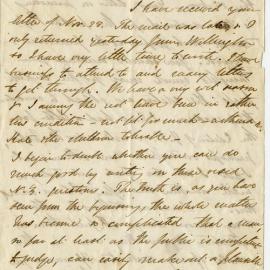 I have received your
letter of Nov. 22. The mail was late & I
only returned yesterday from Wellington
so I have very little time to write. I have
to attend to and many letters
to get through. We have a very
& Fanny has not been in rather
condition - not fit for much - asthma &c
Hate the children tolerable.
I begin to doubt whether you can do
much good by writing in these mixed
N.Z. questions. The truth is, as you have
seen from the beginning, the whole matter
has become so complicated that a man,
so far at least as the public is competent
to judge, can easily make out a plausible